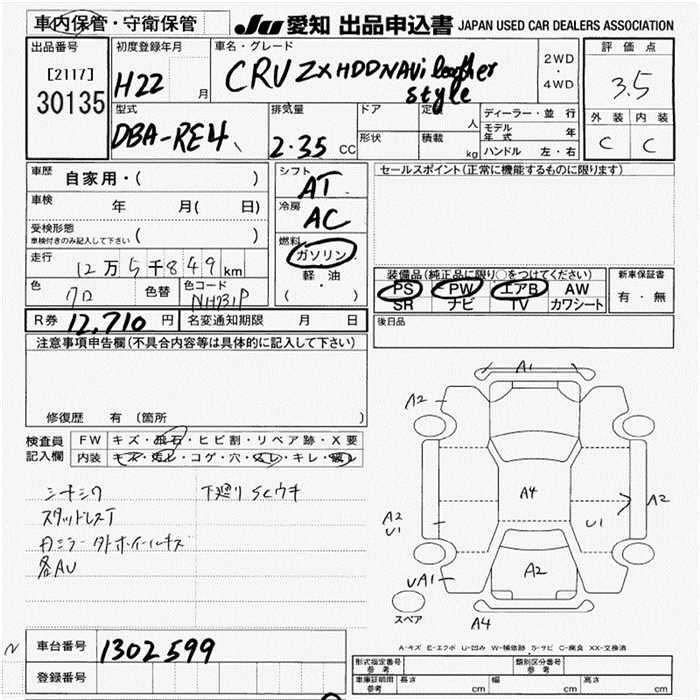 車内保管・守衛保管
JU 愛知 出品申込書 JAPAN USED CAR DEALERS ASSOCIATION
出品番号
[2117]
30135
初度登録年月
H22 月
車名・グレード
CRV ZX HDD NAVi leather style
2WD
・
4WD
評価点
3.5
外装 内装
C C
型式
DBA-RE4
排気量
2.35 CC
ドア
定員
人
形状
積載
kg
ディーラー・並行
モデル年式 年
ハンドル 左・右
車歴
自家用・( )
車検
年 月( 日)
受検形態
車検付きのみ記入して下さい ( )
走行
12万5千849km
色
クロ
色替
色コード
NH731P
シフト
AT
冷房
AC
燃料
ガソリン
・
軽・油
( )
セールスポイント(正常に機能するものに限ります)
装備品(純正品に限り○をつけてください)
PS PW エアB AW
SR ナビ TV カワシート
新車保証書
有・無
R券 12,710 円 名変通知期限 月 日
後日品
注意事項申告欄(不具合内容等は具体的に記入して下さい)
修復歴 有 (箇所 )
検査員
記入欄
FW キズ・飛石・ヒビ割・リペア跡・X要
内装 キズ・汚レ・コゲ・穴・スレ・キレ・破レ
シートシワ 下廻りSCウキ
スタッドレスT
カミラー タトホイールキズ
各AU
A1
A2
A4
A2
U1
A2
U1
UA1
A2
スペア
A4
A-キズ E-エクボ U-凹み W-補修跡 S-サビ C-腐食 XX-交換済
N
車台番号 1302599
登録番号
形式指定番号
参考
類別区分番号
参考
車庫証明用
参考
長さ cm 幅 cm 高さ cm